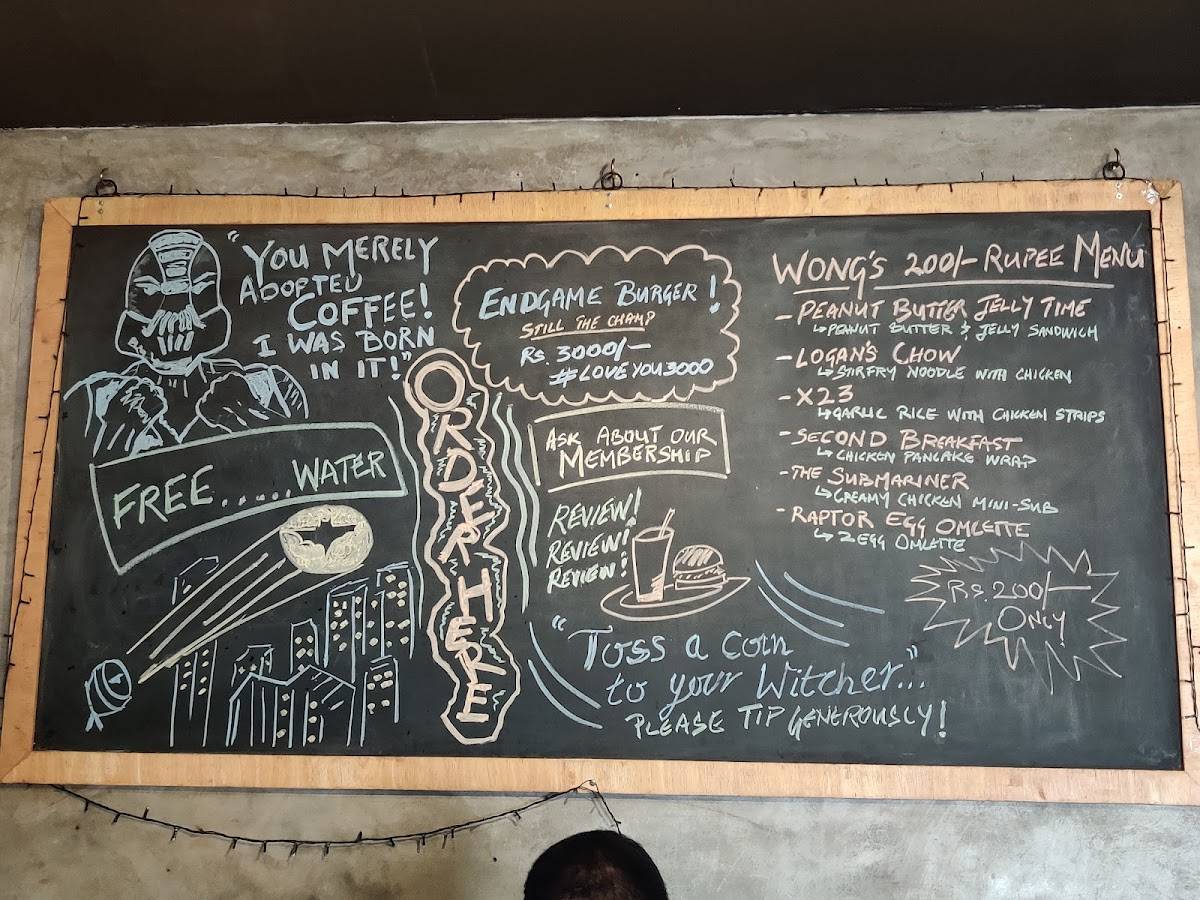 "YOU MERELY
ADOPTED
COFFEE!
I WAS BORN
IN IT!"
FREE......WATER
ORDER HERE
ENDGAME BURGER!
STILL THE CHAMP
RS. 3000/-
#LOVEYOU3000
ASK ABOUT OUR
MEMBERSHIP
REVIEW!
REVIEW!
REVIEW!
"Toss a coin
to your Witcher..."
PLEASE TIP GENEROUSLY!
WONG'S 200/- RUPEE MENU
- PEANUT BUTTER JELLY TIME
↳ PEANUT BUTTER & JELLY SANDWICH
- LOGAN'S CHOW
↳ STIRFRY NOODLE WITH CHICKEN
- X23
↳ GARLIC RICE WITH CHICKEN STRIPS
- SECOND BREAKFAST
↳ CHICKEN PANCAKE WRAP
- THE SUBMARINER
↳ CREAMY CHICKEN MINI-SUB
- RAPTOR EGG OMLETTE
↳ 2 EGG OMLETTE
RS. 200/-
ONLY